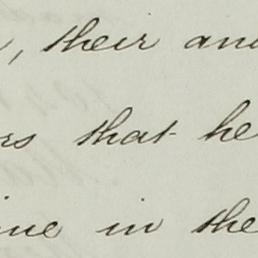 , their and
rs that he
ine in the